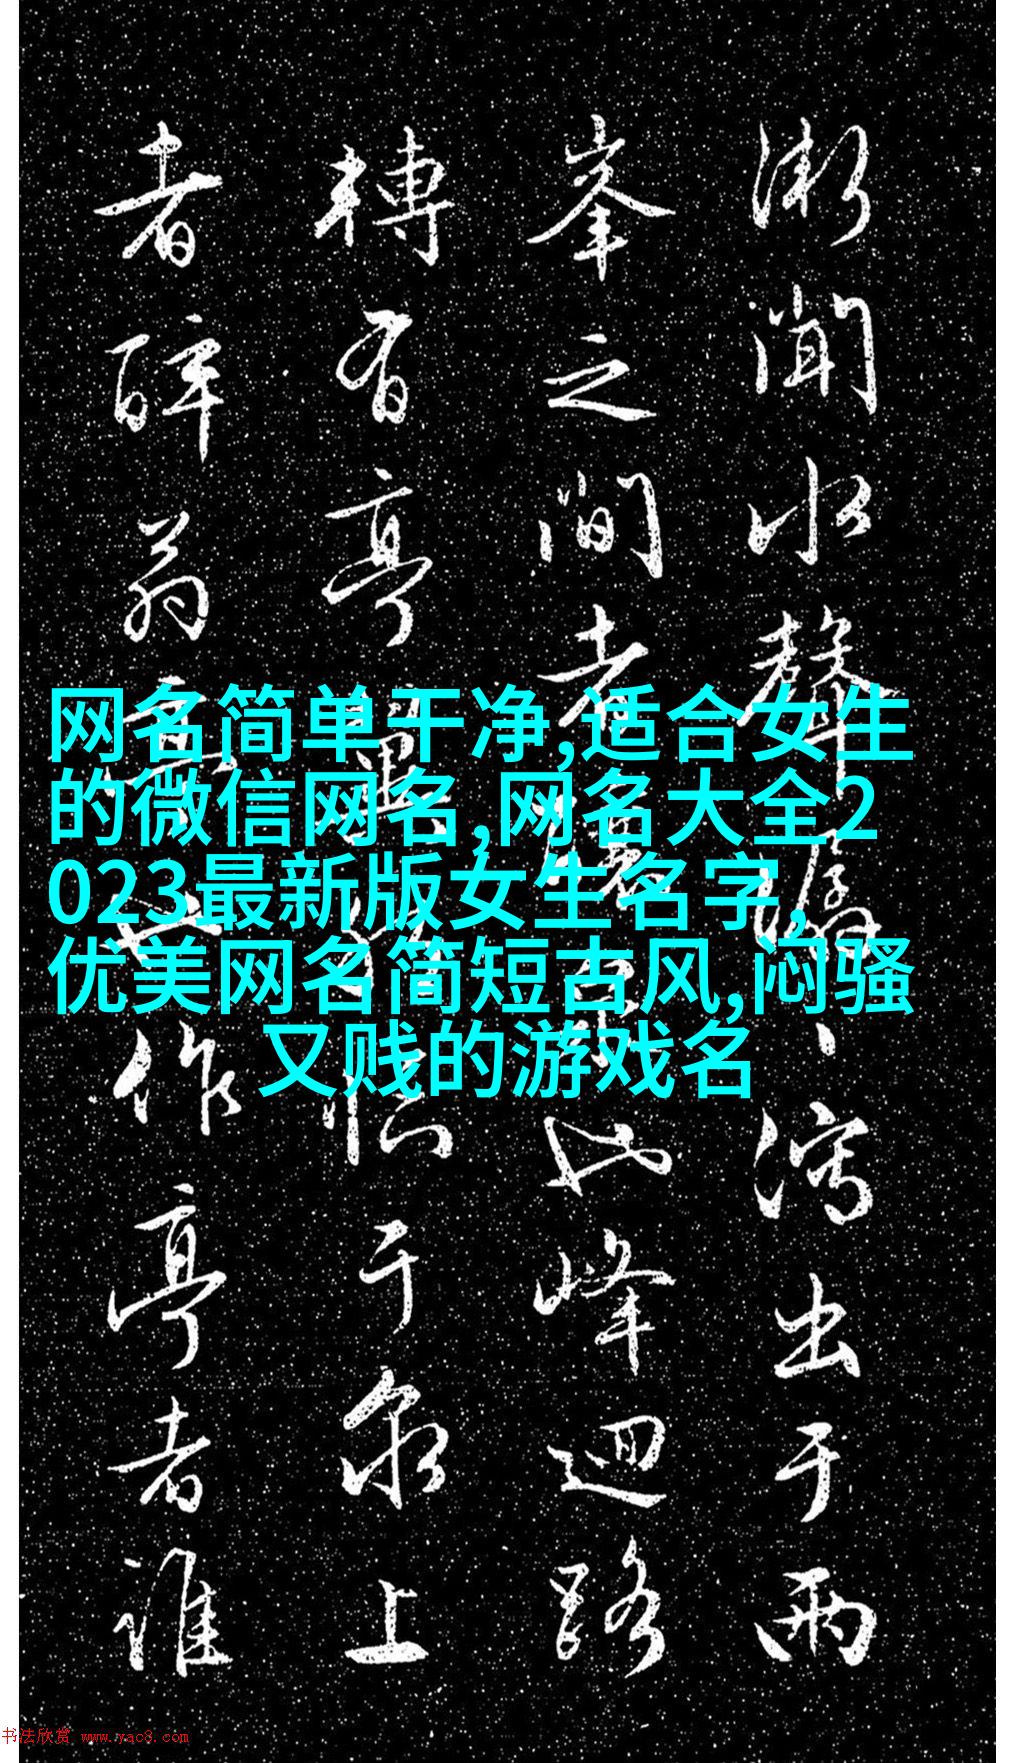 漸聞水聲潺瀉出于兩
峯之間者釀泉也峰迴路
轉有亭翼臨于泉上
者醉翁亭也作亭者誰
网名简单干净,适合女生
的微信网名,网名大全2
023最新版女生名字,
优美网名简短古风,闷骚
又贱的游戏名
书法欣赏 www.yac8.com